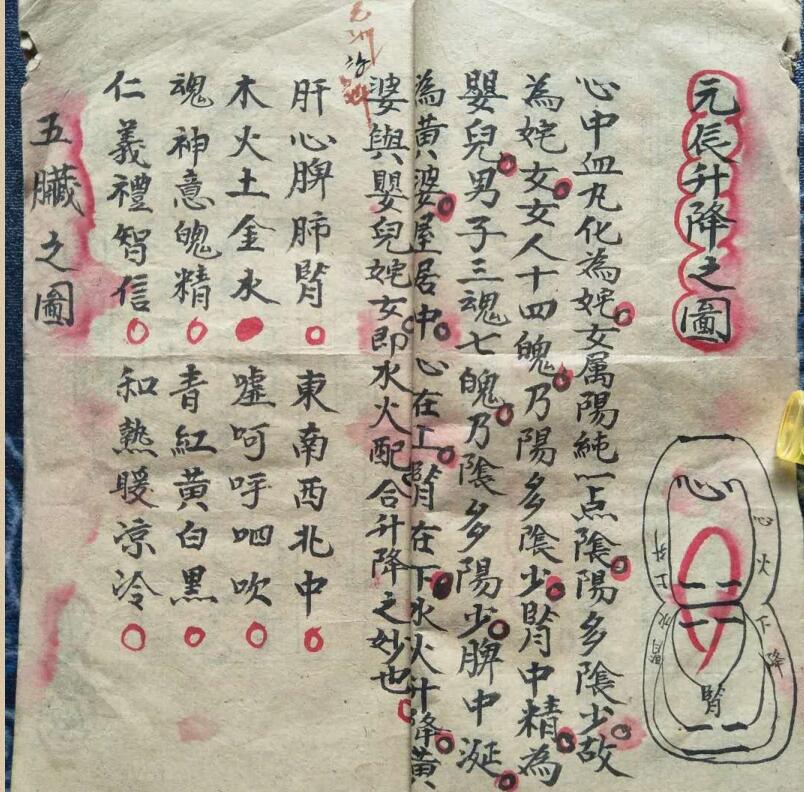 元辰升降之圖
心中血丸化為姹女属陽純一点陰陽多陰少故
為姹女女人十四魄乃陽多陰少腎中精為
嬰兒男子三魂七魄乃陰多陽少脾中涎
為黃婆屋居中心在上腎在下水火升降黃
婆與嬰兒姹女即水火配合升降之妙也
肝心脾肺腎 東南西北中
木火土金水 嘘呵呼呬吹
魂神意魄精 青紅黃白黑
仁義禮智信 和熱暖凉冷
五臟之圖
心
心火
下降
腎水
上升
腎